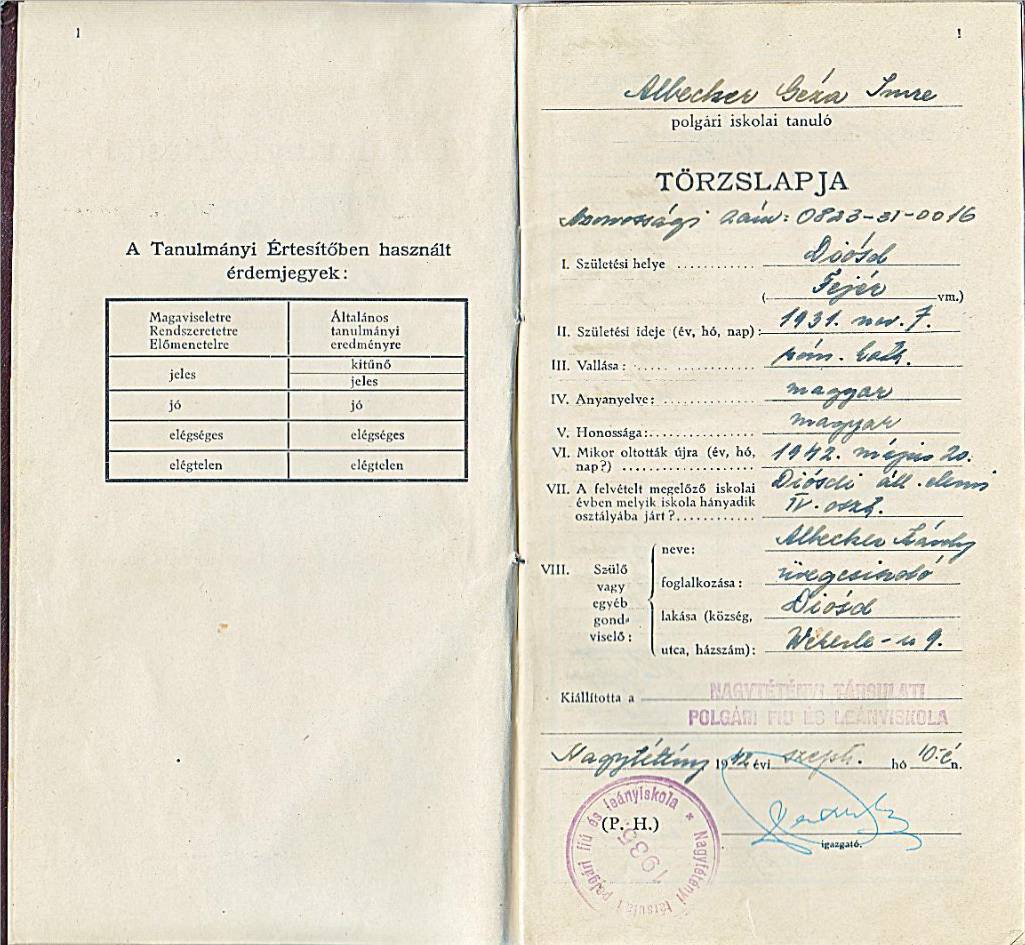 1
A Tanulmányi Értesítőben használt
érdemjegyek:
Magaviseletre
Rendszeretetre
Előmenetelre
Általános
tanulmányi
eredményre
jeles
kitűnő
jeles
jó
jó
elégséges
elégséges
elégtelen
elégtelen
1
Albecker Géza Imre
polgári iskolai tanuló
TÖRZSLAPJA
Azonossági szám: 0823-31-0016
I. Születési helye ............ Diósd
(. Fejér vm.)
II. Születési ideje (év, hó, nap): 1931. nov. 7.
III. Vallása: ................ róm. kath.
IV. Anyanyelve: ............. magyar
V. Honossága: ................ magyar
VI. Mikor oltották újra (év, hó, 1942. május 20.
nap?) ..................
VII. A felvételt megelőző iskolai Diósdi áll. elemi
évben melyik iskola hányadik IV. oszt.
osztályába járt?............
VIII. Szülő vagy egyéb gondviselő:
neve: Albecker Károly
foglalkozása: üvegcsiszoló
lakása (község, Diósd
utca, házszám): Wekerle-u 9.
Kiállította a NAGYTÉTÉNYI TÁRSULATI
POLGÁRI FIU ÉS LEÁNYISKOLA
Nagytétény 1942 évi szept. hó 10-én.
(P. H.)
igazgató.
Nagytétényi társulati polgári fiú és leányiskola * 1935